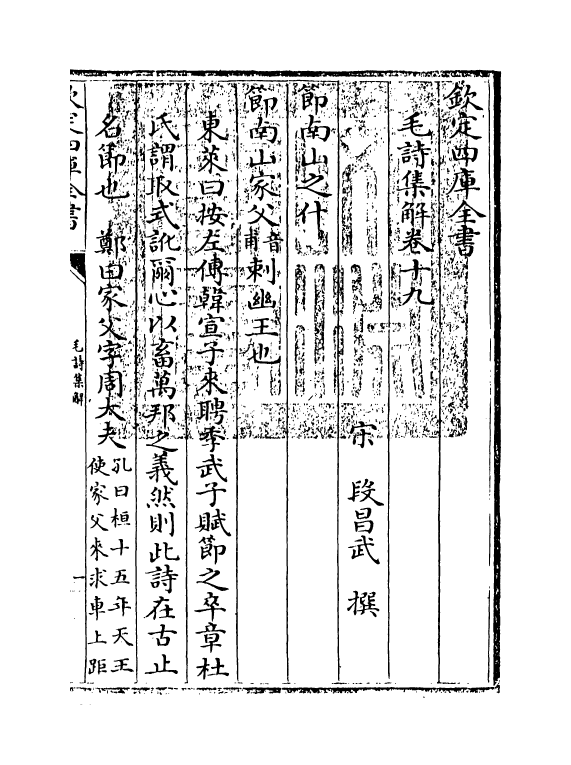 欽定四庫全書
毛詩集解卷十九
宋 段昌武 撰
節南山之什
節南山家父音甫刺幽王也
東萊曰按左傳韓宣子來聘季武子賦節之卒章杜
氏謂取式訛爾心以畜萬邦之義然則此詩在古止
名節也 鄭曰家父字周大夫孔曰桓十五年天王
使家父來求車上距
欽定四庫全書
毛詩集解
一